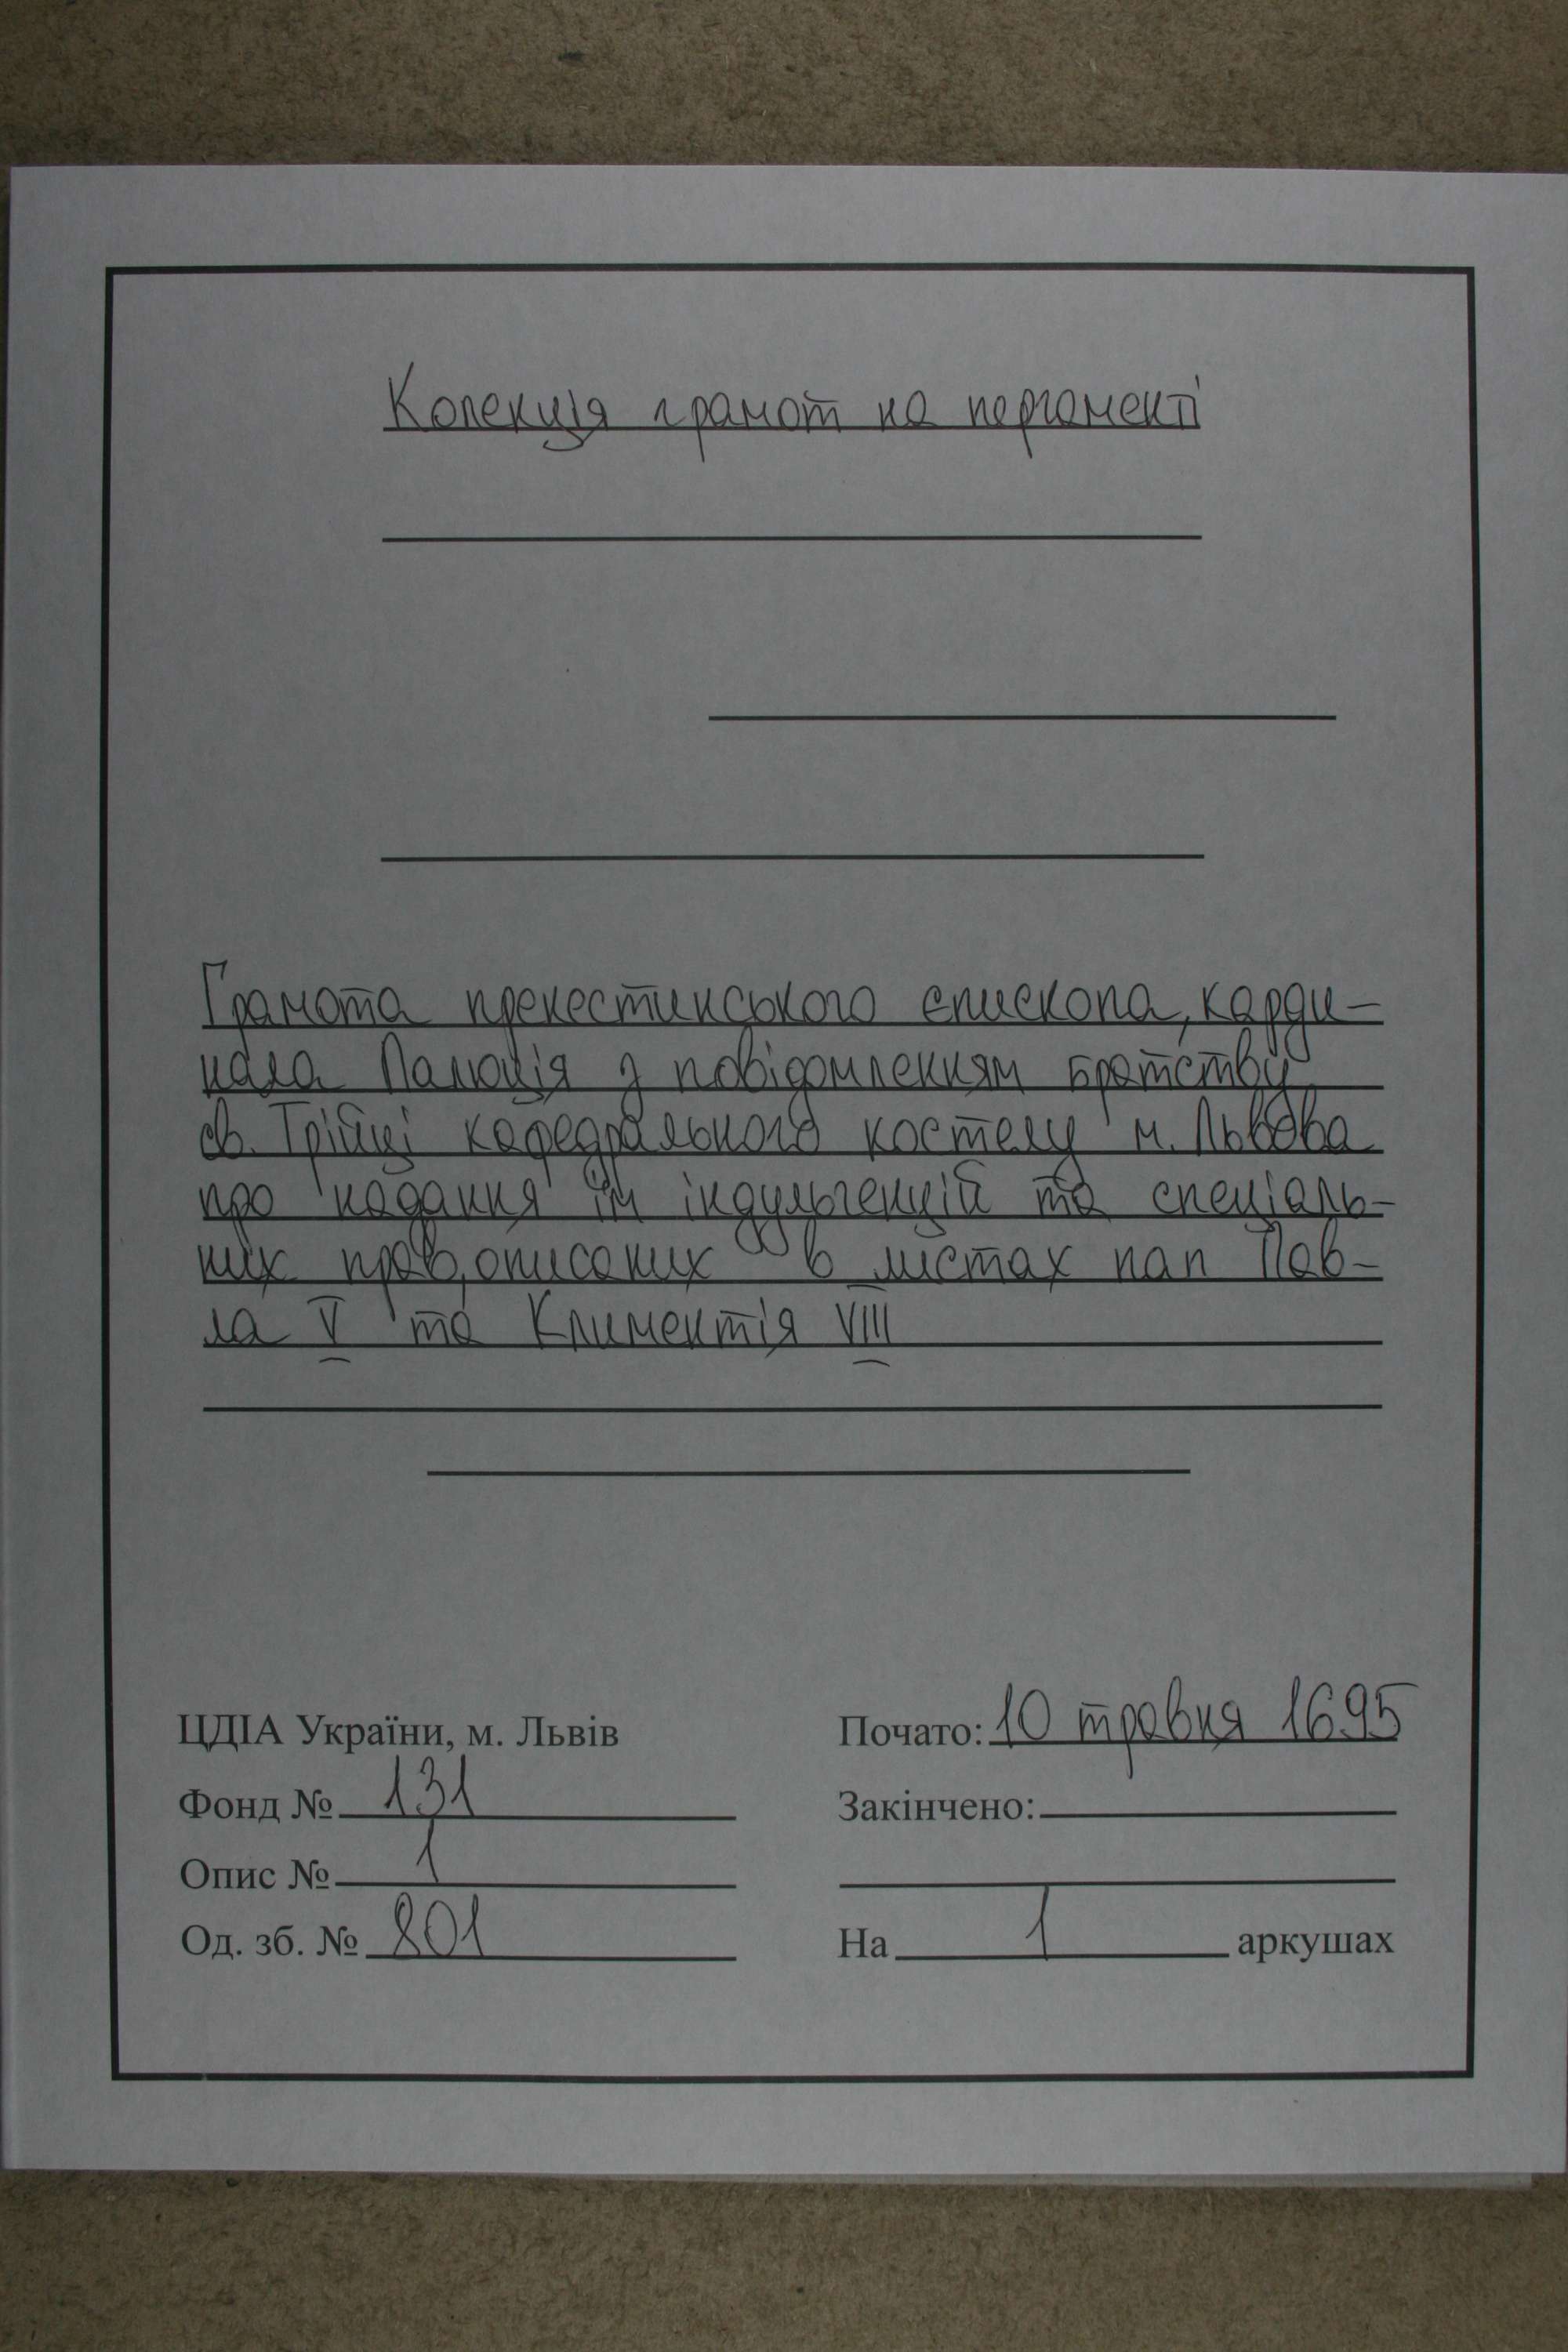 Колекція грамот на пергаменті
Грамота пренестинського єпископа, карди-
нала Палюція з повідомленням братству
св. Трійці кафедрального костелу м. Львова
про надання їм індульгенцій та спеціаль-
них прав, описаних в листах пап Пав-
ла V та Климентія VIII
ЦДІА України, м. Львів
Почато: 10 травня 1695
Фонд № 131
Закінчено:
Опис № 1
Од. зб. № 801
На 1 аркушах